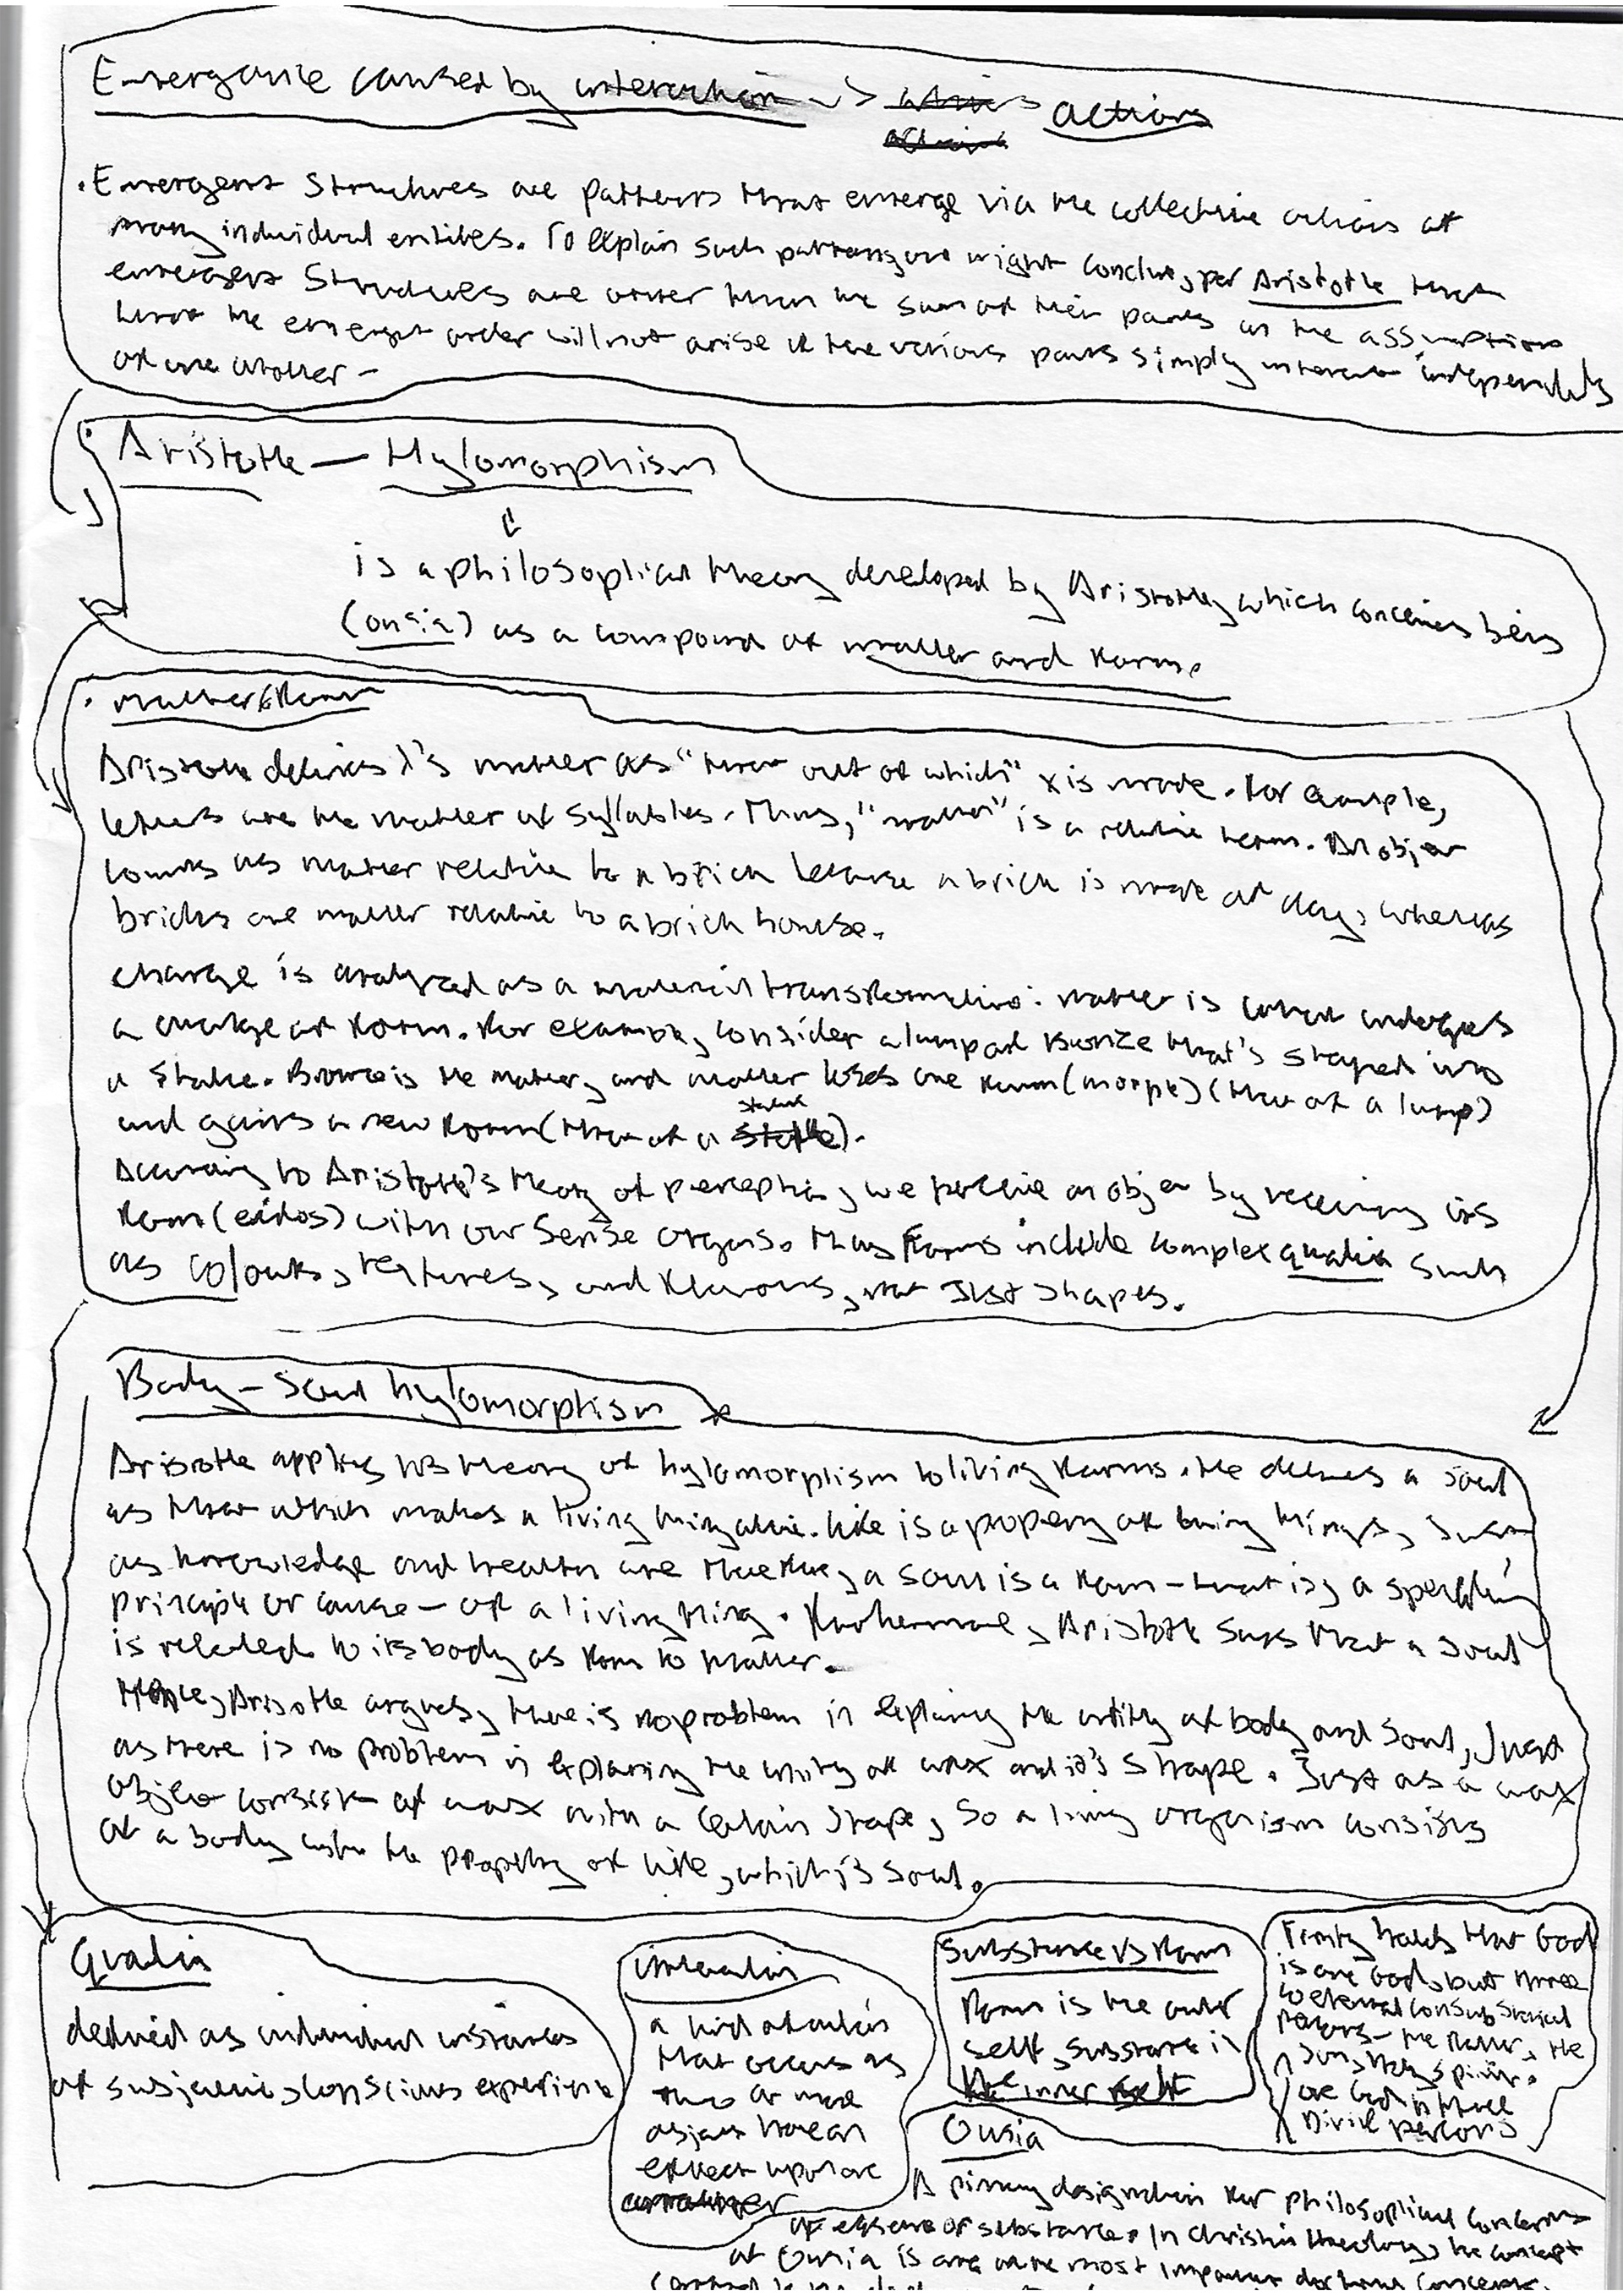 Emergence caused by interaction -> actions
. Emergent Structures are patterns that emerge via the collective actions of
many individual entities. To explain such patterns, one might conclude, per Aristotle that
emergent Structures are other than the sum of their parts on the assumption
that the emergent order will not arise if the various parts simply interact independently
of one another -
. Aristotle — Hylomorphism
is a philosophical theory developed by Aristotle, which conceives being
(ousia) as a compound of matter and form.
. matter/form
Aristotle defines X's matter as "that out of which" x is made. For example,
letters are the matter of syllables. Thus, "matter" is a relative term. An object
counts as matter relative to a brick because a brick is made of clay, whereas
bricks are matter relative to a brick house.
change is analyzed as a material transformation: matter is what undergoes
a change of form. For example, consider a lump of bronze that's shaped into
a statue. Bronze is the matter, and matter loses one form (morphe) (that of a lump)
and gains a new form (that of a statue).
According to Aristotle's theory of perception, we perceive an object by receiving its
form (eidos) with our sense organs. Thus forms include complex qualia such
as colours, textures, and flavours, not Just shapes.
Body - Soul hylomorphism
Aristotle applies his theory of hylomorphism to living forms. He defines a soul
as that which makes a living thing alive. Life is a property of living things, Just
as knowledge and health are Therefore, a soul is a form - that is, a specifying
principle or cause - of a living thing. Furthermore, Aristotle says that a soul
is related to its body as form to matter.
Hence, Aristotle argues, there is no problem in explaining the unity of body and soul, Just
as there is no problem in explaining the unity of wax and it's shape. Just as a wax
object consists of wax with a certain shape, So a living organism consists
of a body with the property of life, which is soul.
Qualia
defined as individual instances
of subjective, conscious experience
interaction
a kind of action
that occurs as
two or more
objects have an
effect upon one
another
Substance vs form
form is the outer
self, substance is
the inner self
Trinity holds that God
is one God, but three
coeternal consubstantial
persons - the father, the
son, holy spirit.
one God in three
Divine persons
Ousia
A primary designation for philosophical concerns
of essence or substance. In Christian theology, the concept
of Ousia is one of the most important doctrinal concepts,